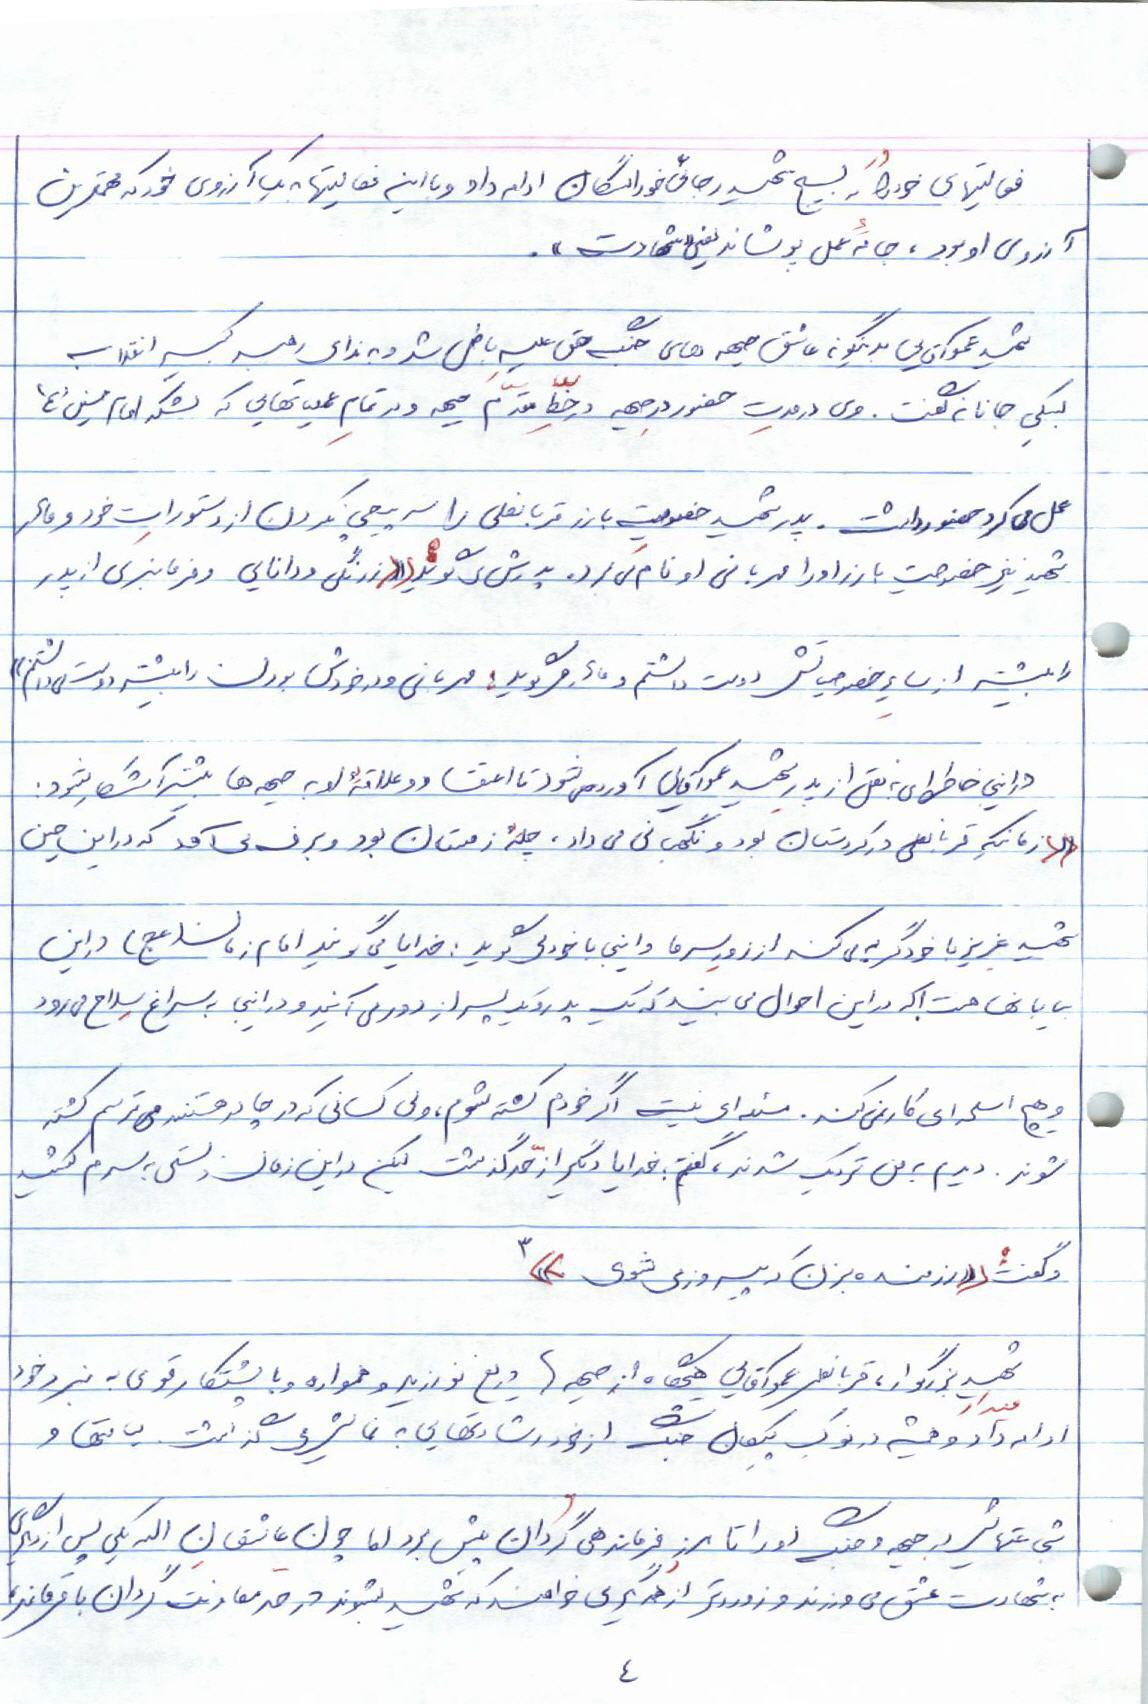 فعالیتهای خود را در بسیج شهید رجائی خوراسگان ادامه داد و با این فعالیتها به یک آرزوی خود که مهمترین
آرزوی او بود، جامهٔ عمل پوشاند یعنی «شهادت».
شهید عموآقایی بدینگونه عاشق جبهه های جنگ حق علیه باطل شد و به ندای رهبر کبیر انقلاب
لبیکی جانانه گفت. وی در مدت حضور در جبهه در خطّ مقدّم جبهه و در تمام عملیاتهایی که لشکر امام حسین (ع)
عمل می کرد حضور داشت. پدر شهید خصوصیت بارز قربانعلی را سرپیچی نکردن از دستورات خود و مادر
شهید نیز خصوصیت بارز او را مهربانی او نام می برد. پدرش می گوید: «زرنگی و دانایی و فرمانبری از پدر
را بیشتر از سایر خصوصیاتش دوست داشتم و مادرش می گوید: مهربانی و در خودش بودن را بیشتر دوست می داشتم»
در اینجا خاطره ای به نقل از پدر شهید عموآقایی آورده می شود تا اعتقاد و علاقهٔ او به جبهه ها بیشتر آشکار شود:
«زمانیکه قربانعلی در کردستان بود و نگهبانی می داد، چلهٔ زمستان بود و برف می آمد که در این حین
شهید عزیز با خود گریه می کند از زور سرما و اینجا با خود می گوید: خدایا می گویند امام زمان (عج) در این
بیابانهاست که در این احوال می بیند که یک پدر و یک پسر از دور می آیند و در اینجا به سراغ سلاح می رود
و هیچ اسلحه ای کار نمی کند. مسئله ای نیست اگر خودم کشته شوم، ولی کسانی که در چادر هستند می ترسم کشته
شوند. دیدم به من نزدیک شدند، گفتم: خدایا دیگر از حدّ گذشت لیکن در این زمان دستی به سرم کشید
و گفت: «رزمنده بزن که پیروز می شوی»۳
شهید بزرگوار، قربانعلی عموآقایی هیچگاه از جبهه ها دریغ نورزید و همواره و با پشتکار قوی به نبرد خود
ادامه داد و همیشه در نوک پیکان جنگ از خود رشادتهایی به نمایش می گذاشت. لیاقتها و
شجاعتهایش در جبهه و جنگ او را تا مرز فرماندهی گردان پیش برد اما چون عاشقان الله یکی پس از دیگری
به شهادت عشق می ورزند و زودتر از همدیگر می خواهند که شهید بشوند در حد معاونت گردان با فرمانده
۴